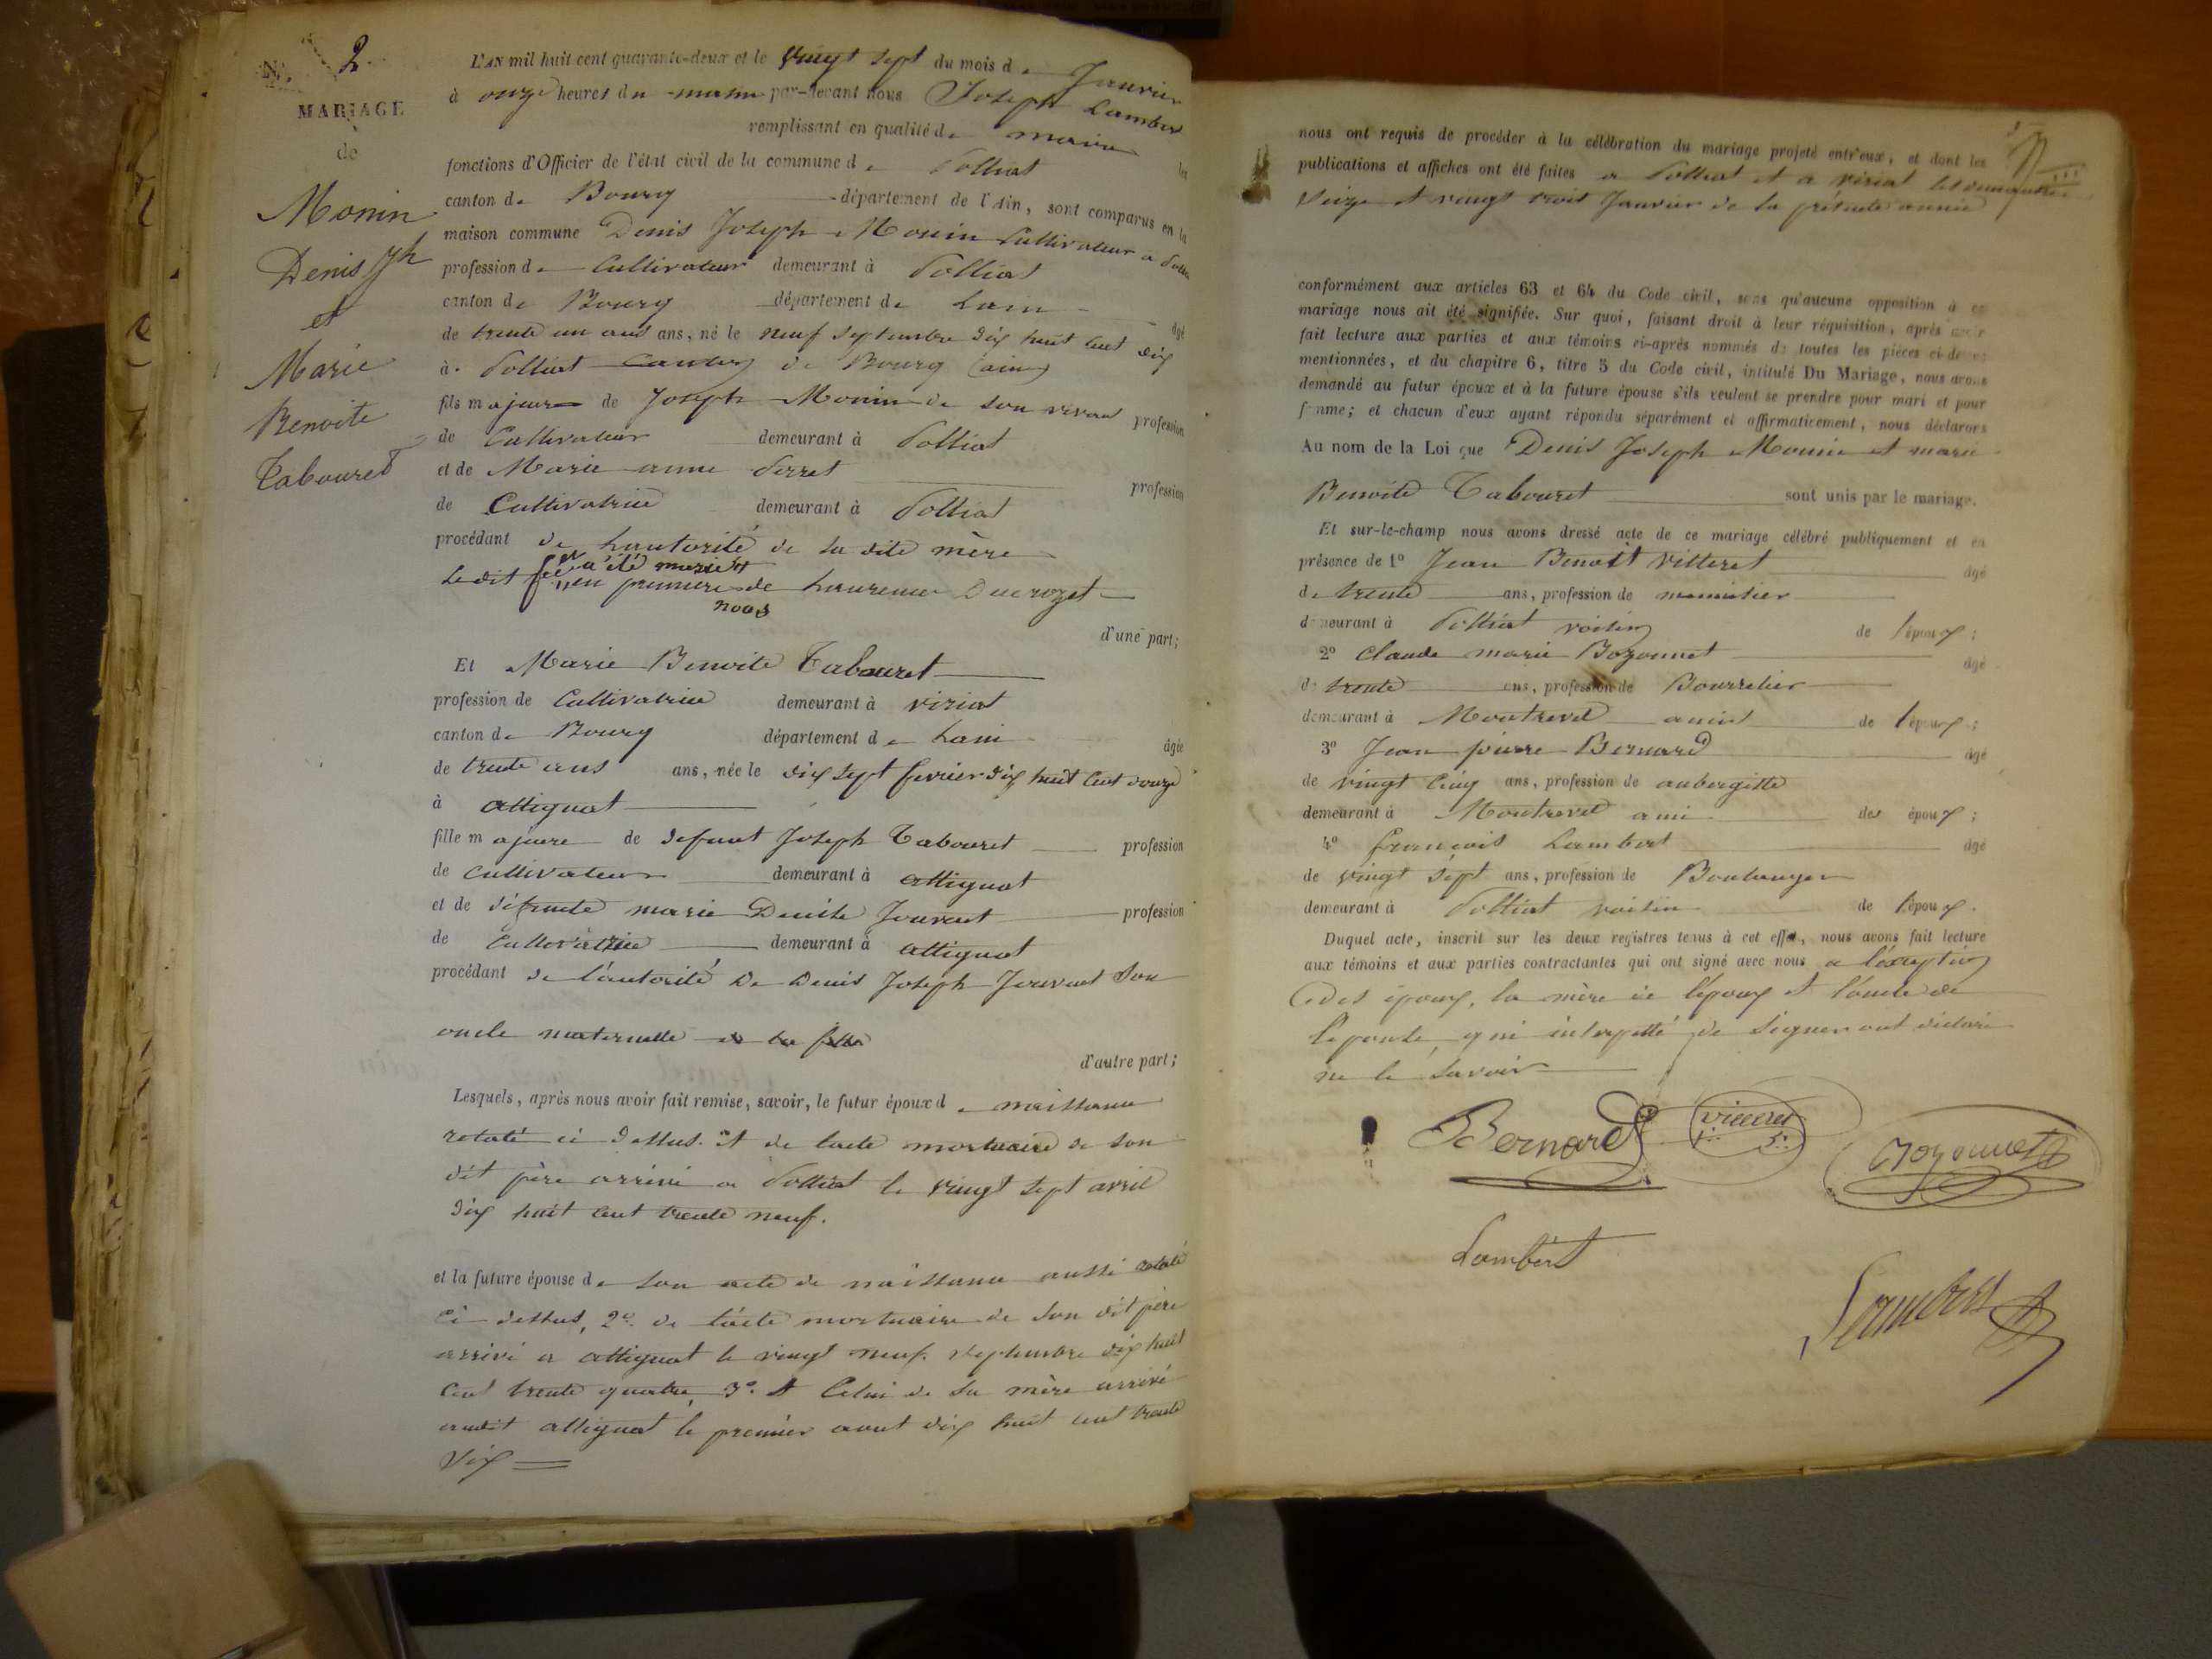 N.° 2.
MARIAGE
de
Monin
Denis Jh
et
Marie
Benoite
Tabouret
L'AN mil huit cent quarante-deux et le vingt sept du mois de Janvier
à onze heures du matin par-devant nous Joseph Lambert
remplissant en qualité de maire les
fonctions d'Officier de l'état civil de la commune de Polliat
canton de Bourg département de l'Ain, sont comparus en la
maison commune Denis Joseph Monin Cultivateur a Polliat
profession de Cultivateur demeurant à Polliat
canton de Bourg département de Lain âgé
de trente un ans ans, né le neuf septembre dix huit cent dix
à Polliat canton de Bourg (ain)
fils majeur de Joseph Monin de son vivant profession
de Cultivateur demeurant à Polliat
et de Marie anne Perret profession
de Cultivatrice demeurant à Polliat
procédant de Lautorité de la dite mère
a été marié
Le dit en premiere de Laurence Ducrozet
noces
d'une part;
Et Marie Benoite Tabouret
profession de Cultivatrice demeurant à viriat
canton de Bourg département de Lain âgée
de trente ans ans, née le dix sept fevrier dix huit cent douze
à attignat
fille majeure de defunt Joseph Tabouret profession
de cultivateur demeurant à attignat
et de défunte marie Denise Jouvent profession
de Cultivatrice demeurant à attignat
procédant de l'autorité De Denis Joseph Jouvent son
oncle maternelle
d'autre part;
Lesquels, après nous avoir fait remise, savoir, le futur époux de naissance
relaté ci dessus. et de lacte mortuaire de son
dit père arrivé a Polliat le vingt sept avril
dix huit cent trente neuf.
et la future épouse de son acte de naissance aussi relaté
ci dessus, 2° de l'acte mortuaire de son dit père
arrivé a attignat le vingt neuf septembre dix huit
cent trente quatre, 3° et Celui de sa mère arrivé
audit attignat le premier aout dix huit cent trente
six
nous ont requis de procéder à la célébration du mariage projeté entr'eux, et dont les
publications et affiches ont été faites a Polliat et a viriat les dimanches
seize et vingt trois Janvier de la présente année
conformément aux articles 63 et 64 du Code civil, sans qu'aucune opposition à ce
mariage nous ait été signifiée. Sur quoi, faisant droit à leur réquisition, après avoir
fait lecture aux parties et aux témoins ci-après nommés de toutes les pièces ci-dessus
mentionnées, et du chapitre 6, titre 5 du Code civil, intitulé Du Mariage, nous avons
demandé au futur époux et à la future épouse s'ils veulent se prendre pour mari et pour
femme; et chacun d'eux ayant répondu séparément et affirmativement, nous déclarons
Au nom de la Loi que Denis Joseph Monin et marie
Benoite Tabouret sont unis par le mariage.
Et sur-le-champ nous avons dressé acte de ce mariage célébré publiquement et en
présence de 1° Jean Benoit Vitteret âgé
de trente ans, profession de menuisier
demeurant à Polliat voisin de l'époux;
2° Claude marie Bozonnet âgé
de trente ans, profession de Bourrelier
demeurant à Montrevel amis de l'époux;
3° Jean pierre Bernard âgé
de vingt cinq ans, profession de aubergiste
demeurant à Montrevel ami des époux;
4° françois Lambert âgé
de vingt sept ans, profession de Boulanger
demeurant à Polliat voisin de l'époux.
Duquel acte, inscrit sur les deux registres tenus à cet effet, nous avons fait lecture
aux témoins et aux parties contractantes qui ont signé avec nous a l'exception
des époux, la mère de l'époux et l'oncle de
lepouse, qui interpellé de signer ont déclaré
ne le savoir
Bernard
Bozonnet
Lambert
Lambert